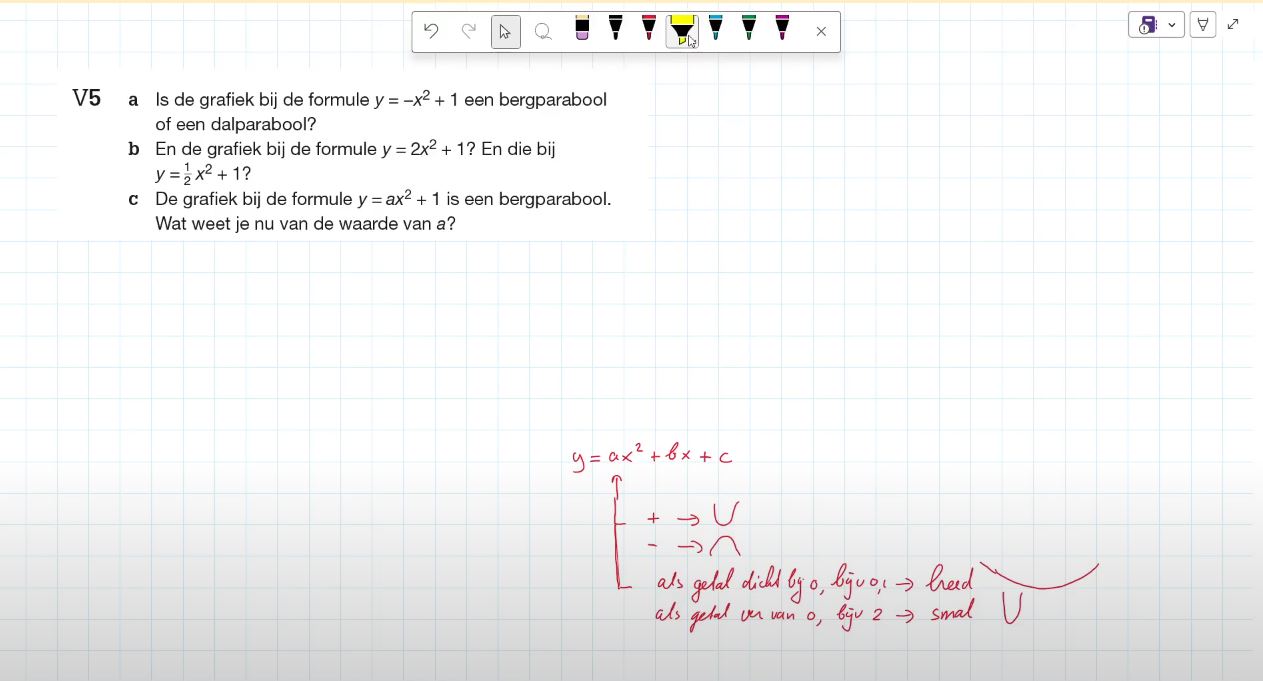 V5 a Is de grafiek bij de formule y = –x² + 1 een bergparabool
of een dalparabool?
b En de grafiek bij de formule y = 2x² + 1? En die bij
y = ½ x² + 1?
c De grafiek bij de formule y = ax² + 1 is een bergparabool.
Wat weet je nu van de waarde van a?
y = ax² + bx + c
+ →
- →
als getal dicht bij 0, bijv 0,1 → breed
als getal ver van 0, bijv 2 → smal